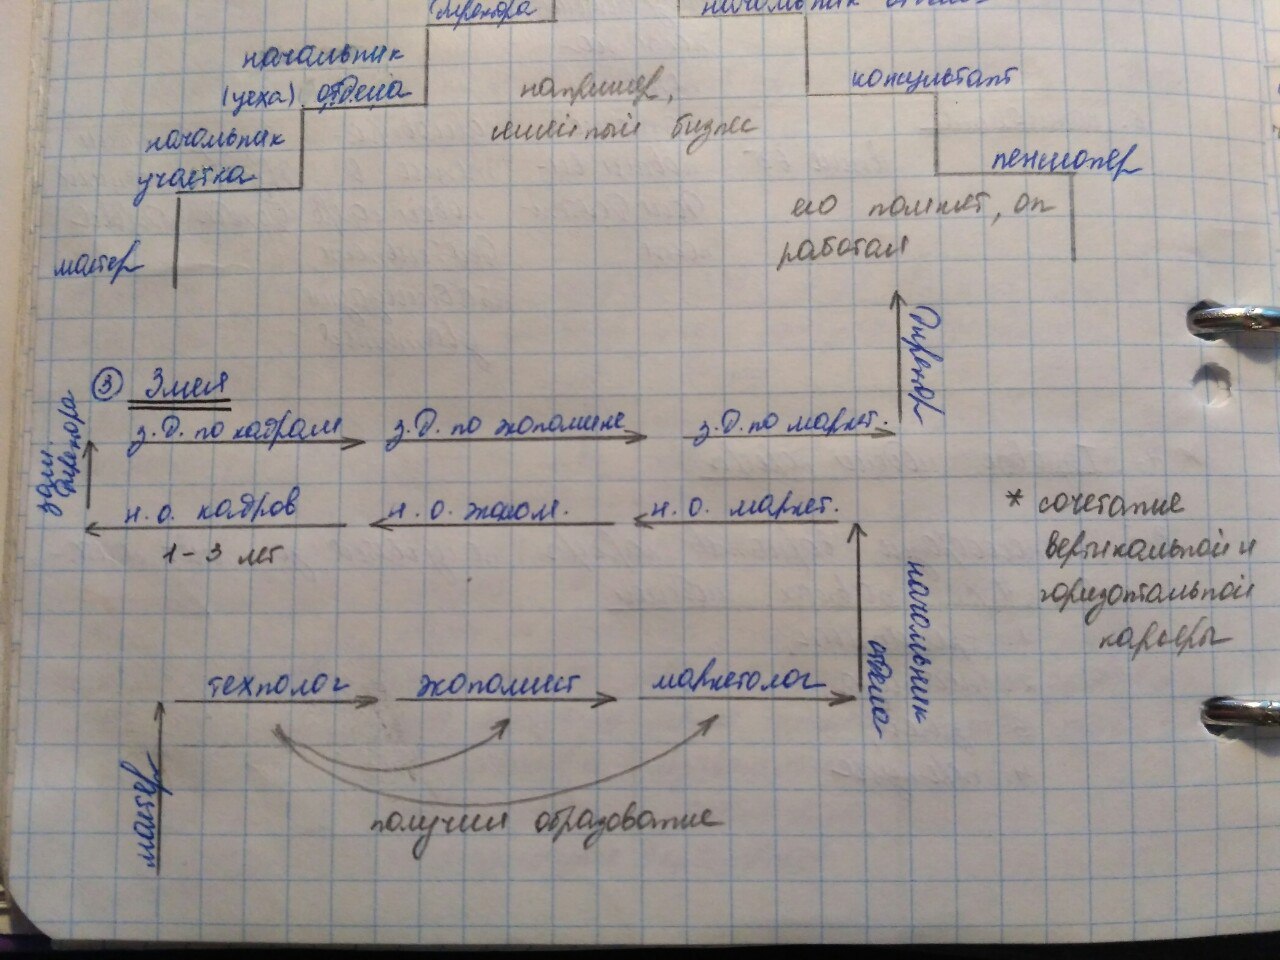 директора
начальник отдела
начальник
(цеха) отдела
например,
семейный бизнес
консультант
начальник
участка
пенсионер
мастер
его помнят, он
работал
директор
③ Змея
з.д. по кадрам
з.д. по экономике
з.д. по маркет.
зам. директора
н.о. кадров
н.о. эконом.
н.о. маркет.
1-3 лет
* сочетание
вертикальной и
горизонтальной
карьеры
начальник
отдела
технолог
экономист
маркетолог
мастер
получил образование